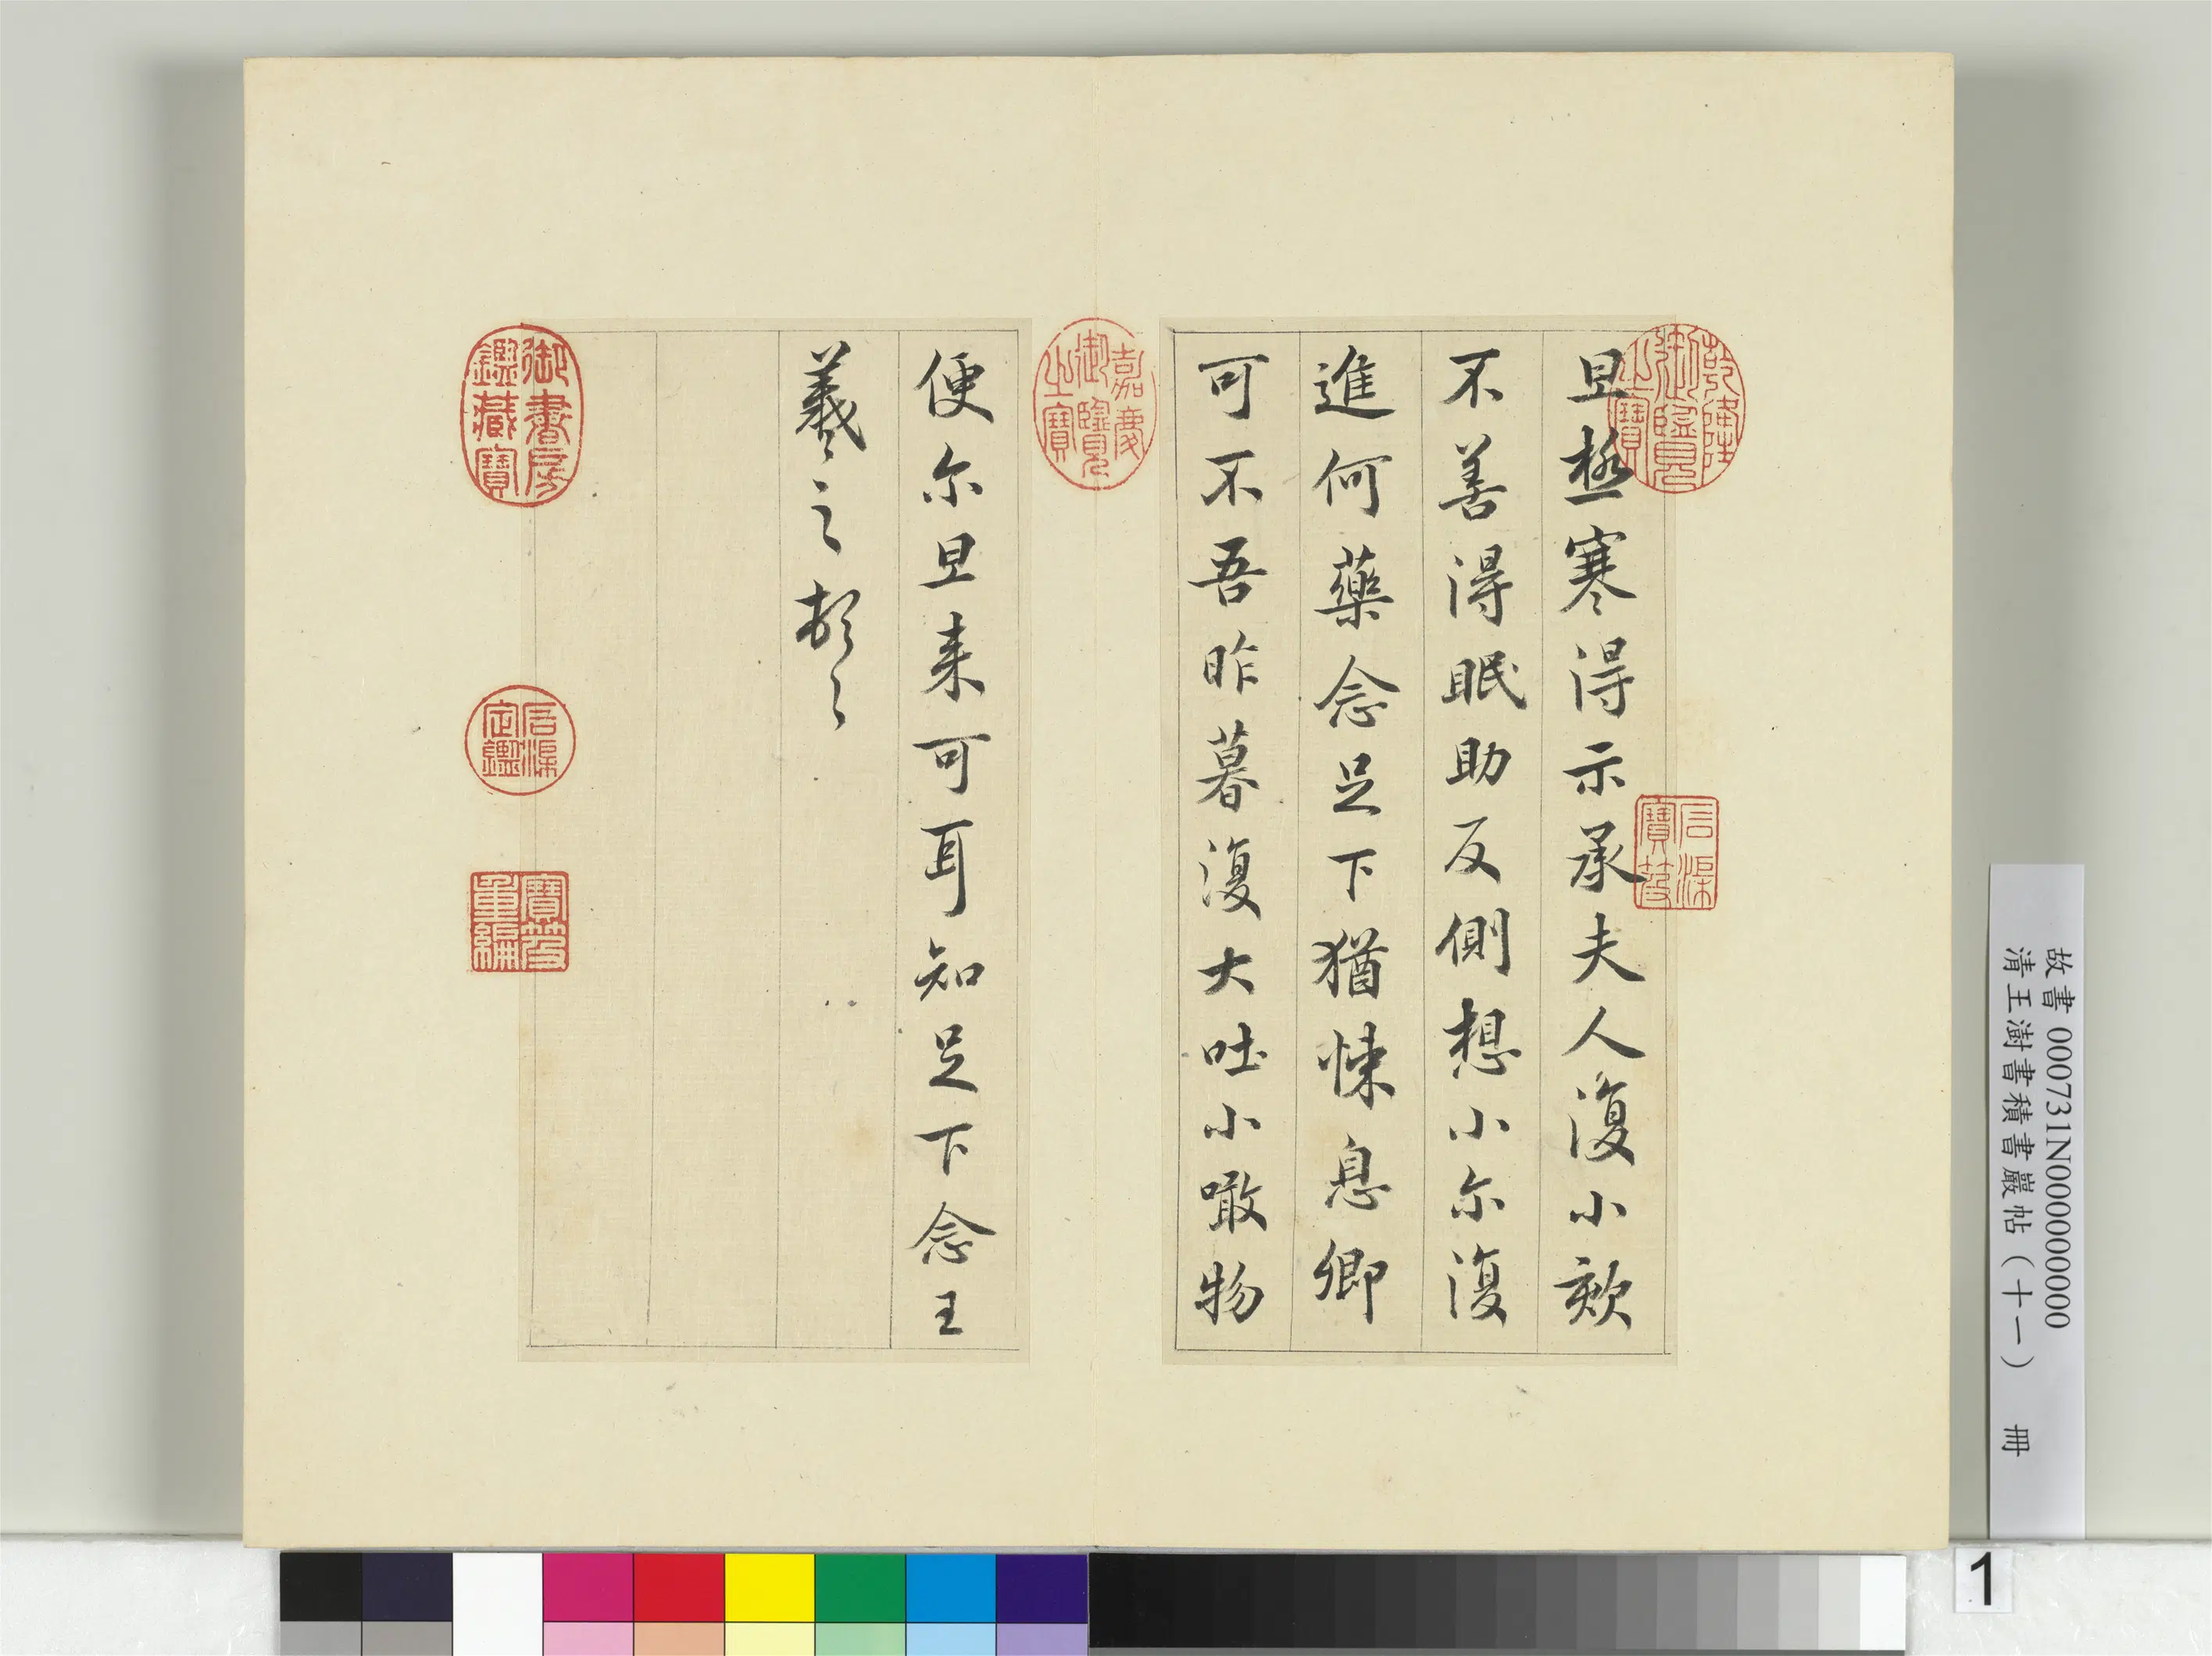 旦極寒得示承夫人復小欬
不善得眠助反側想小尔復
進何藥念足下猶悚息卿
可不吾昨暮復大吐小噉物
便尔旦来可耳知足下念王
羲之頓之
乾隆御覽之寶
石渠寶笈
嘉慶御覽之寶
御書房鑑藏寶
石渠定鑑
寶笈重編
故書 000731N000000000
清王澍書積書巖帖(十一) 冊
1